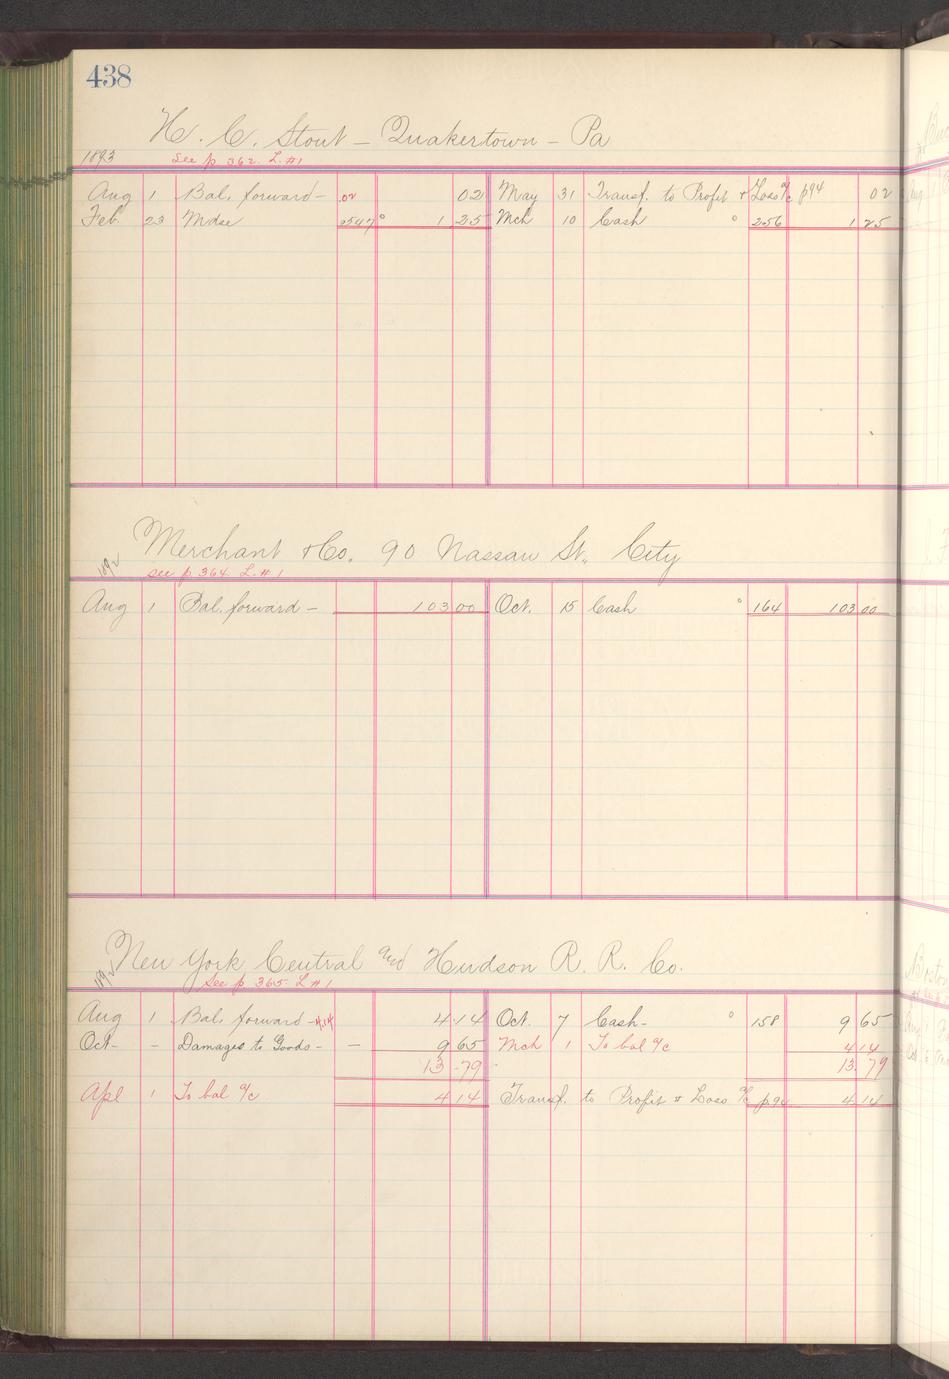 438
H. C. Stout - Quakertown - Pa
1893 See p 362. L. #1
Aug 1 Bal. forward - .02 02 May 31 Transf. to Profit & Loss a/c p94 02
Feb. 23 Mdse 2547 ° 1 25 Mch 10 Cash ° 256 1 25
Merchant & Co. 90 Nassau St., City
1892 see p 364 L. #1
Aug 1 Bal. forward - 103 00 Oct. 15 Cash ° 164 103 00
New York Central and Hudson R. R. Co.
1892 See p 365 L #1
Aug 1 Bal. forward - 4.14 4 14 Oct. 7 Cash - ° 158 9 65
Oct - - Damages to Goods - - 9 65 Mch 1 To bal a/c 4 14
13 - 79 13. 79
Apl 1 To bal a/c 4 14 Transf. to Profit & Loss a/c p 94 4 14